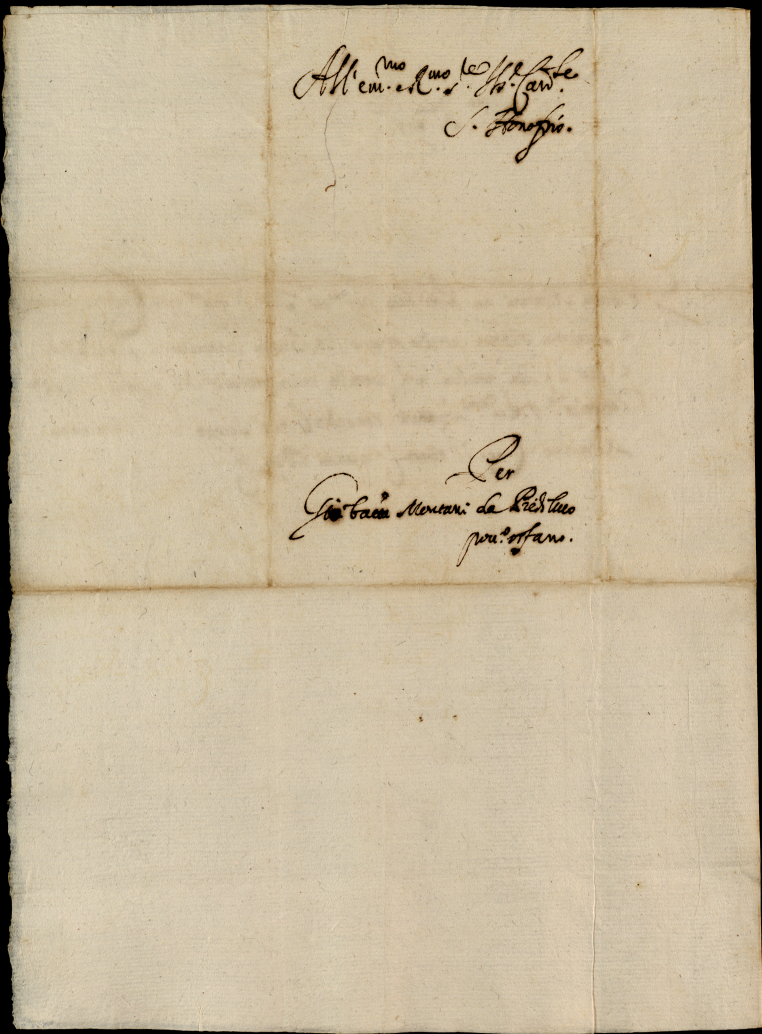 All' em.mo e R.mo s.re il s.r Card.le
S. Honofrio.
Per
Gio batta Montani da
pou.o orfano.